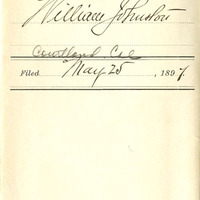 William Johnston
Courtland, Cal
Filed May 25, 1897.